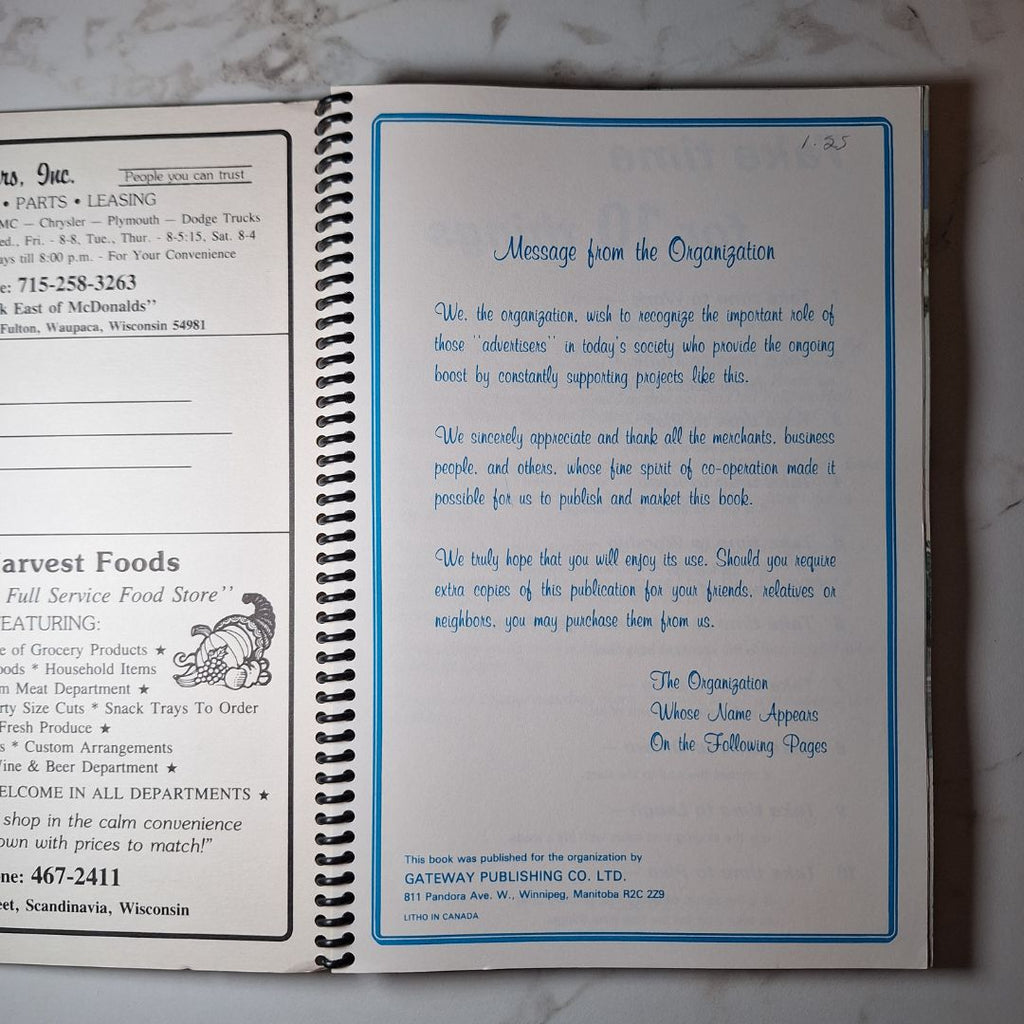 rs, Inc.
People you can trust
• PARTS • LEASING
MC — Chrysler — Plymouth — Dodge Trucks
ed., Fri. - 8-8, Tue., Thur. - 8-5:15, Sat. 8-4
ays till 8:00 p.m. - For Your Convenience
e: 715-258-3263
k East of McDonalds"
Fulton, Waupaca, Wisconsin 54981
arvest Foods
Full Service Food Store"
EATURING:
e of Grocery Products ★
oods * Household Items
m Meat Department ★
rty Size Cuts * Snack Trays To Order
Fresh Produce ★
s * Custom Arrangements
Wine & Beer Department ★
ELCOME IN ALL DEPARTMENTS ★
shop in the calm convenience
own with prices to match!"
ne: 467-2411
eet, Scandinavia, Wisconsin
1.25
Message from the Organization
We, the organization, wish to recognize the important role of
those "advertisers" in today's society who provide the ongoing
boost by constantly supporting projects like this.
We sincerely appreciate and thank all the merchants, business
people, and others, whose fine spirit of co-operation made it
possible for us to publish and market this book.
We truly hope that you will enjoy its use. Should you require
extra copies of this publication for your friends, relatives or
neighbors, you may purchase them from us.
The Organization
Whose Name Appears
On the Following Pages
This book was published for the organization by
GATEWAY PUBLISHING CO. LTD.
811 Pandora Ave. W., Winnipeg, Manitoba R2C 2Z9
LITHO IN CANADA